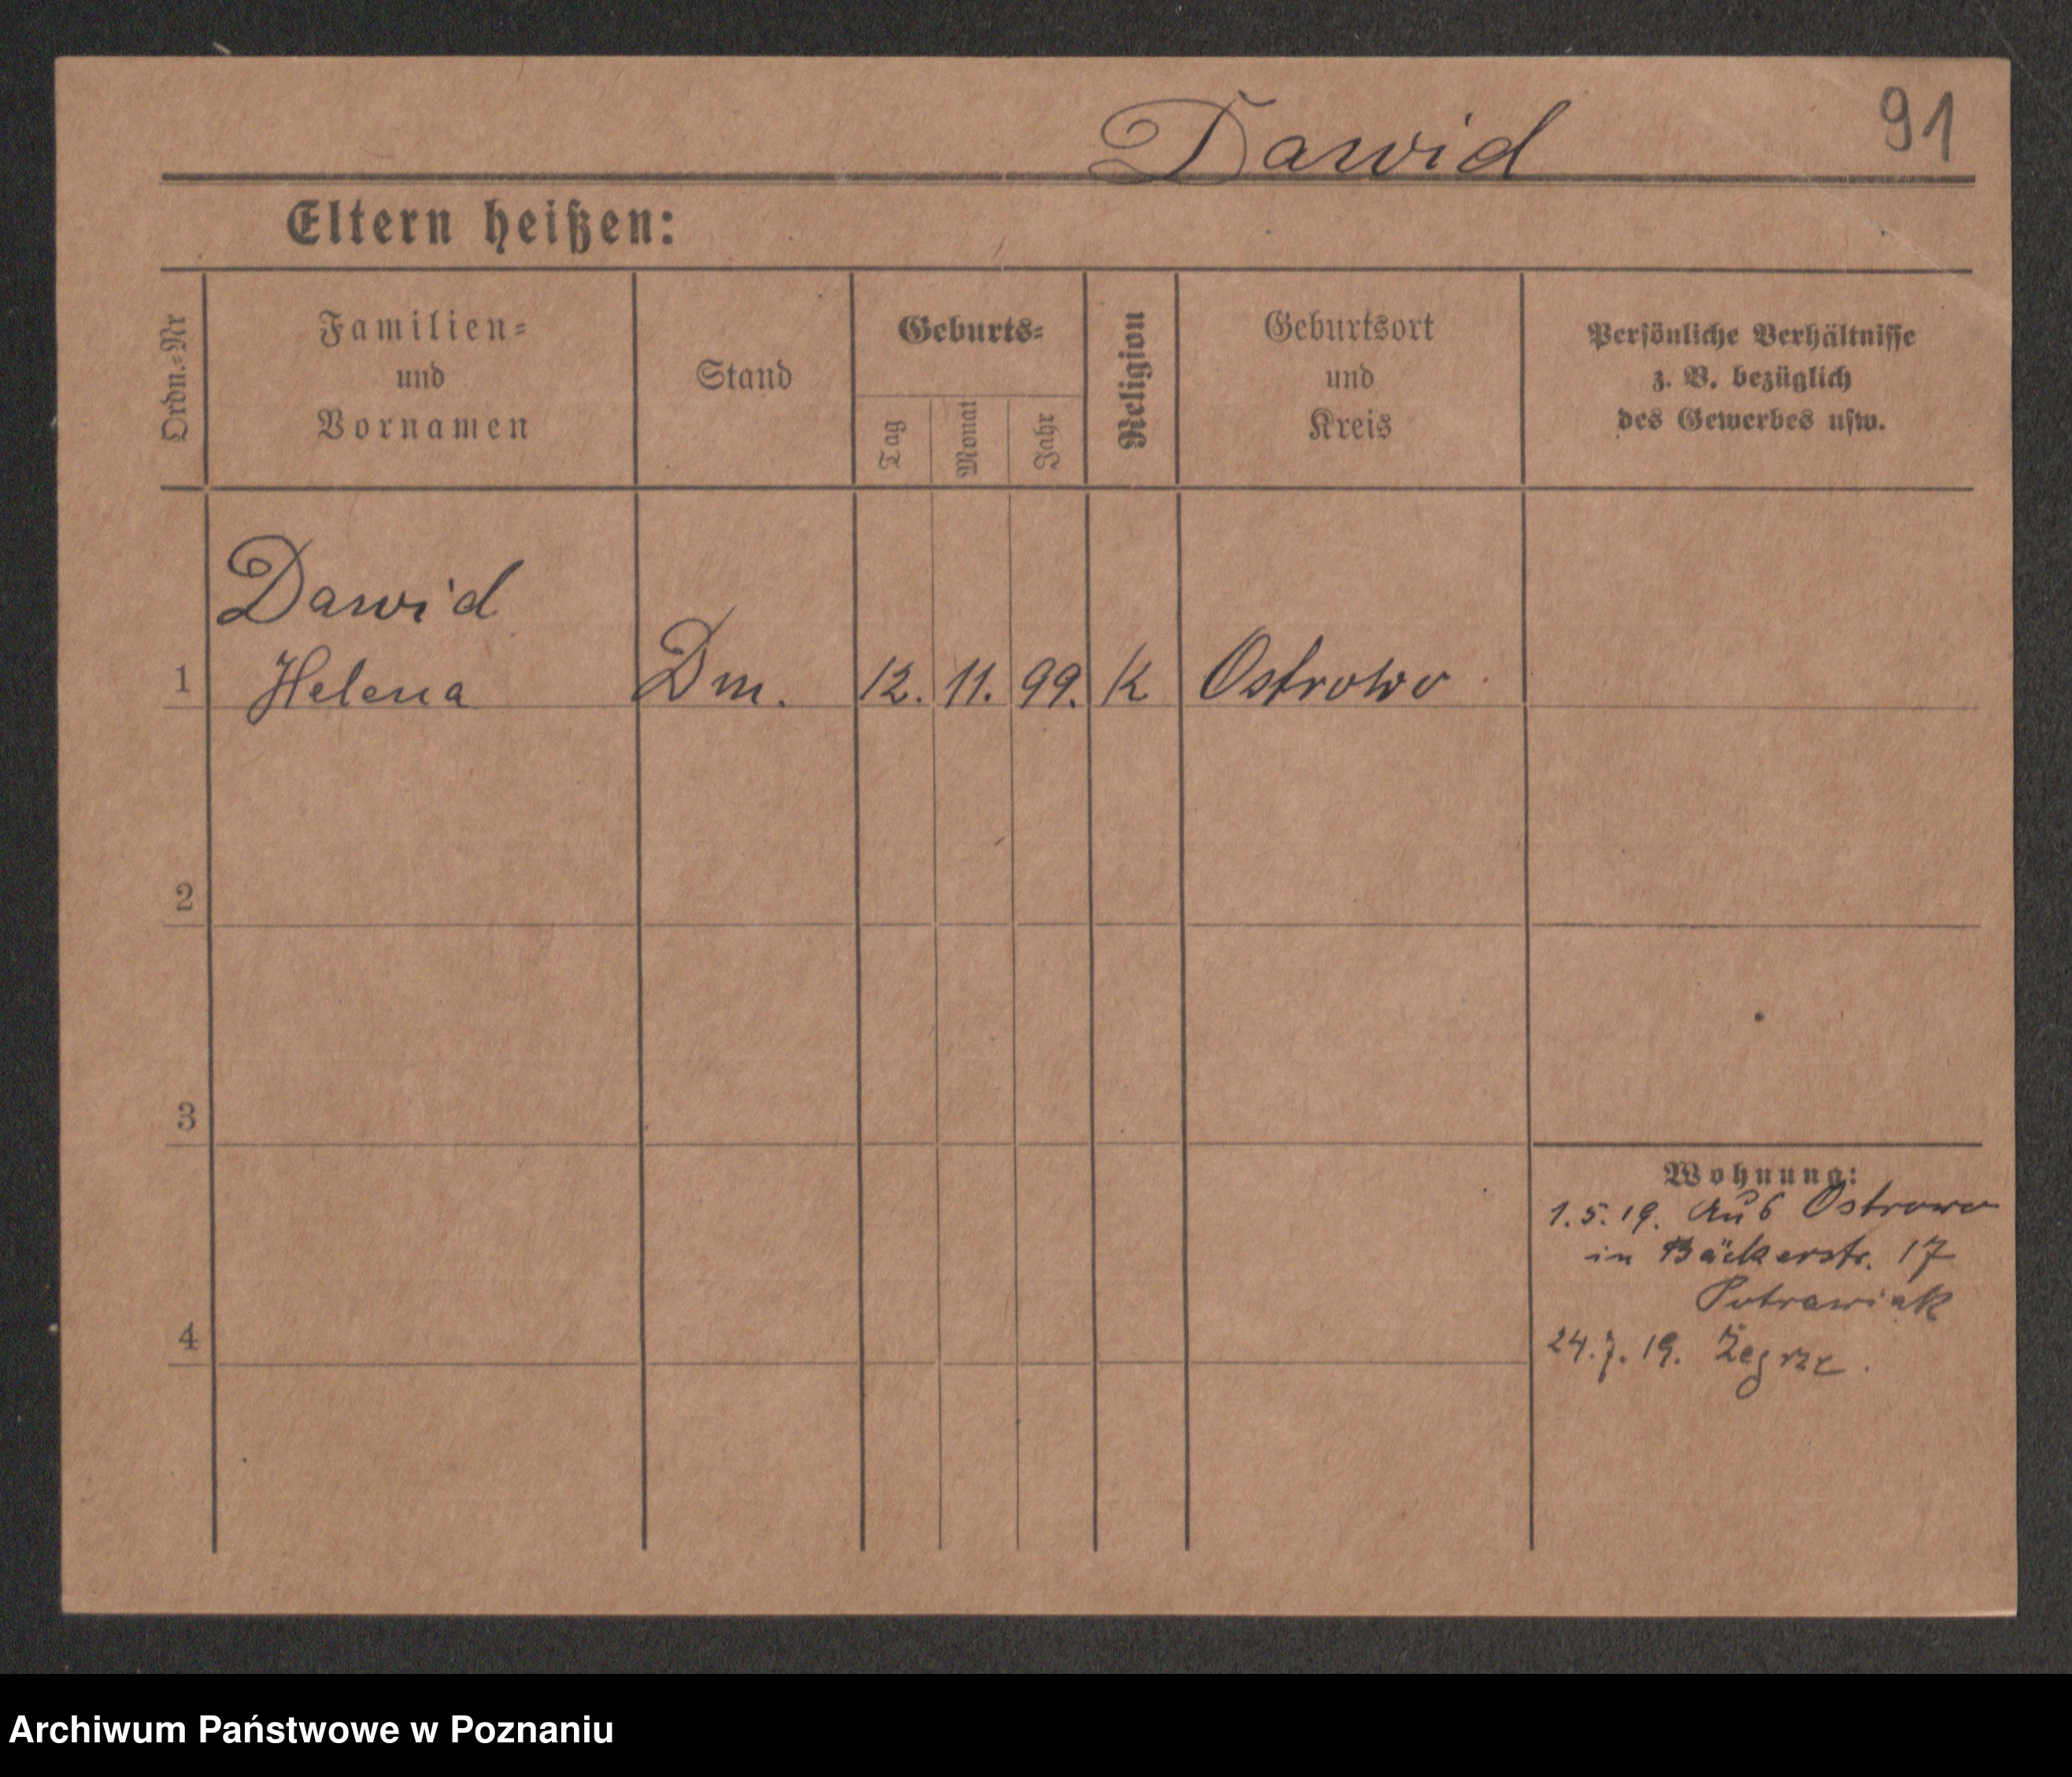 91
Dawid
Eltern heißen:
Ordn.=Nr
Familien=
und
Vornamen
Stand
Geburts=
Tag
Monat
Jahr
Religion
Geburtsort
und
Kreis
Persönliche Verhältnisse
z. B. bezüglich
des Gewerbes usw.
Dawid
1 Helena Dm. 12. 11. 99. K Ostrowo
2
3
Wohnung:
1.5.19. Aus Ostrowo
in Bäckerstr. 17
Potrawiak
4
24.7.19. Żegrze.
Archiwum Państwowe w Poznaniu